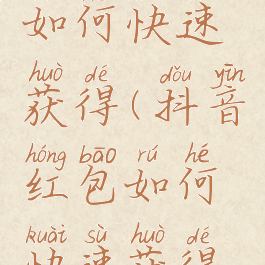 如何快速
huò dé dǒu yīn
获得(抖音
hóng bāo rú hé
红包如何
kuài sù huò dé
快速获得